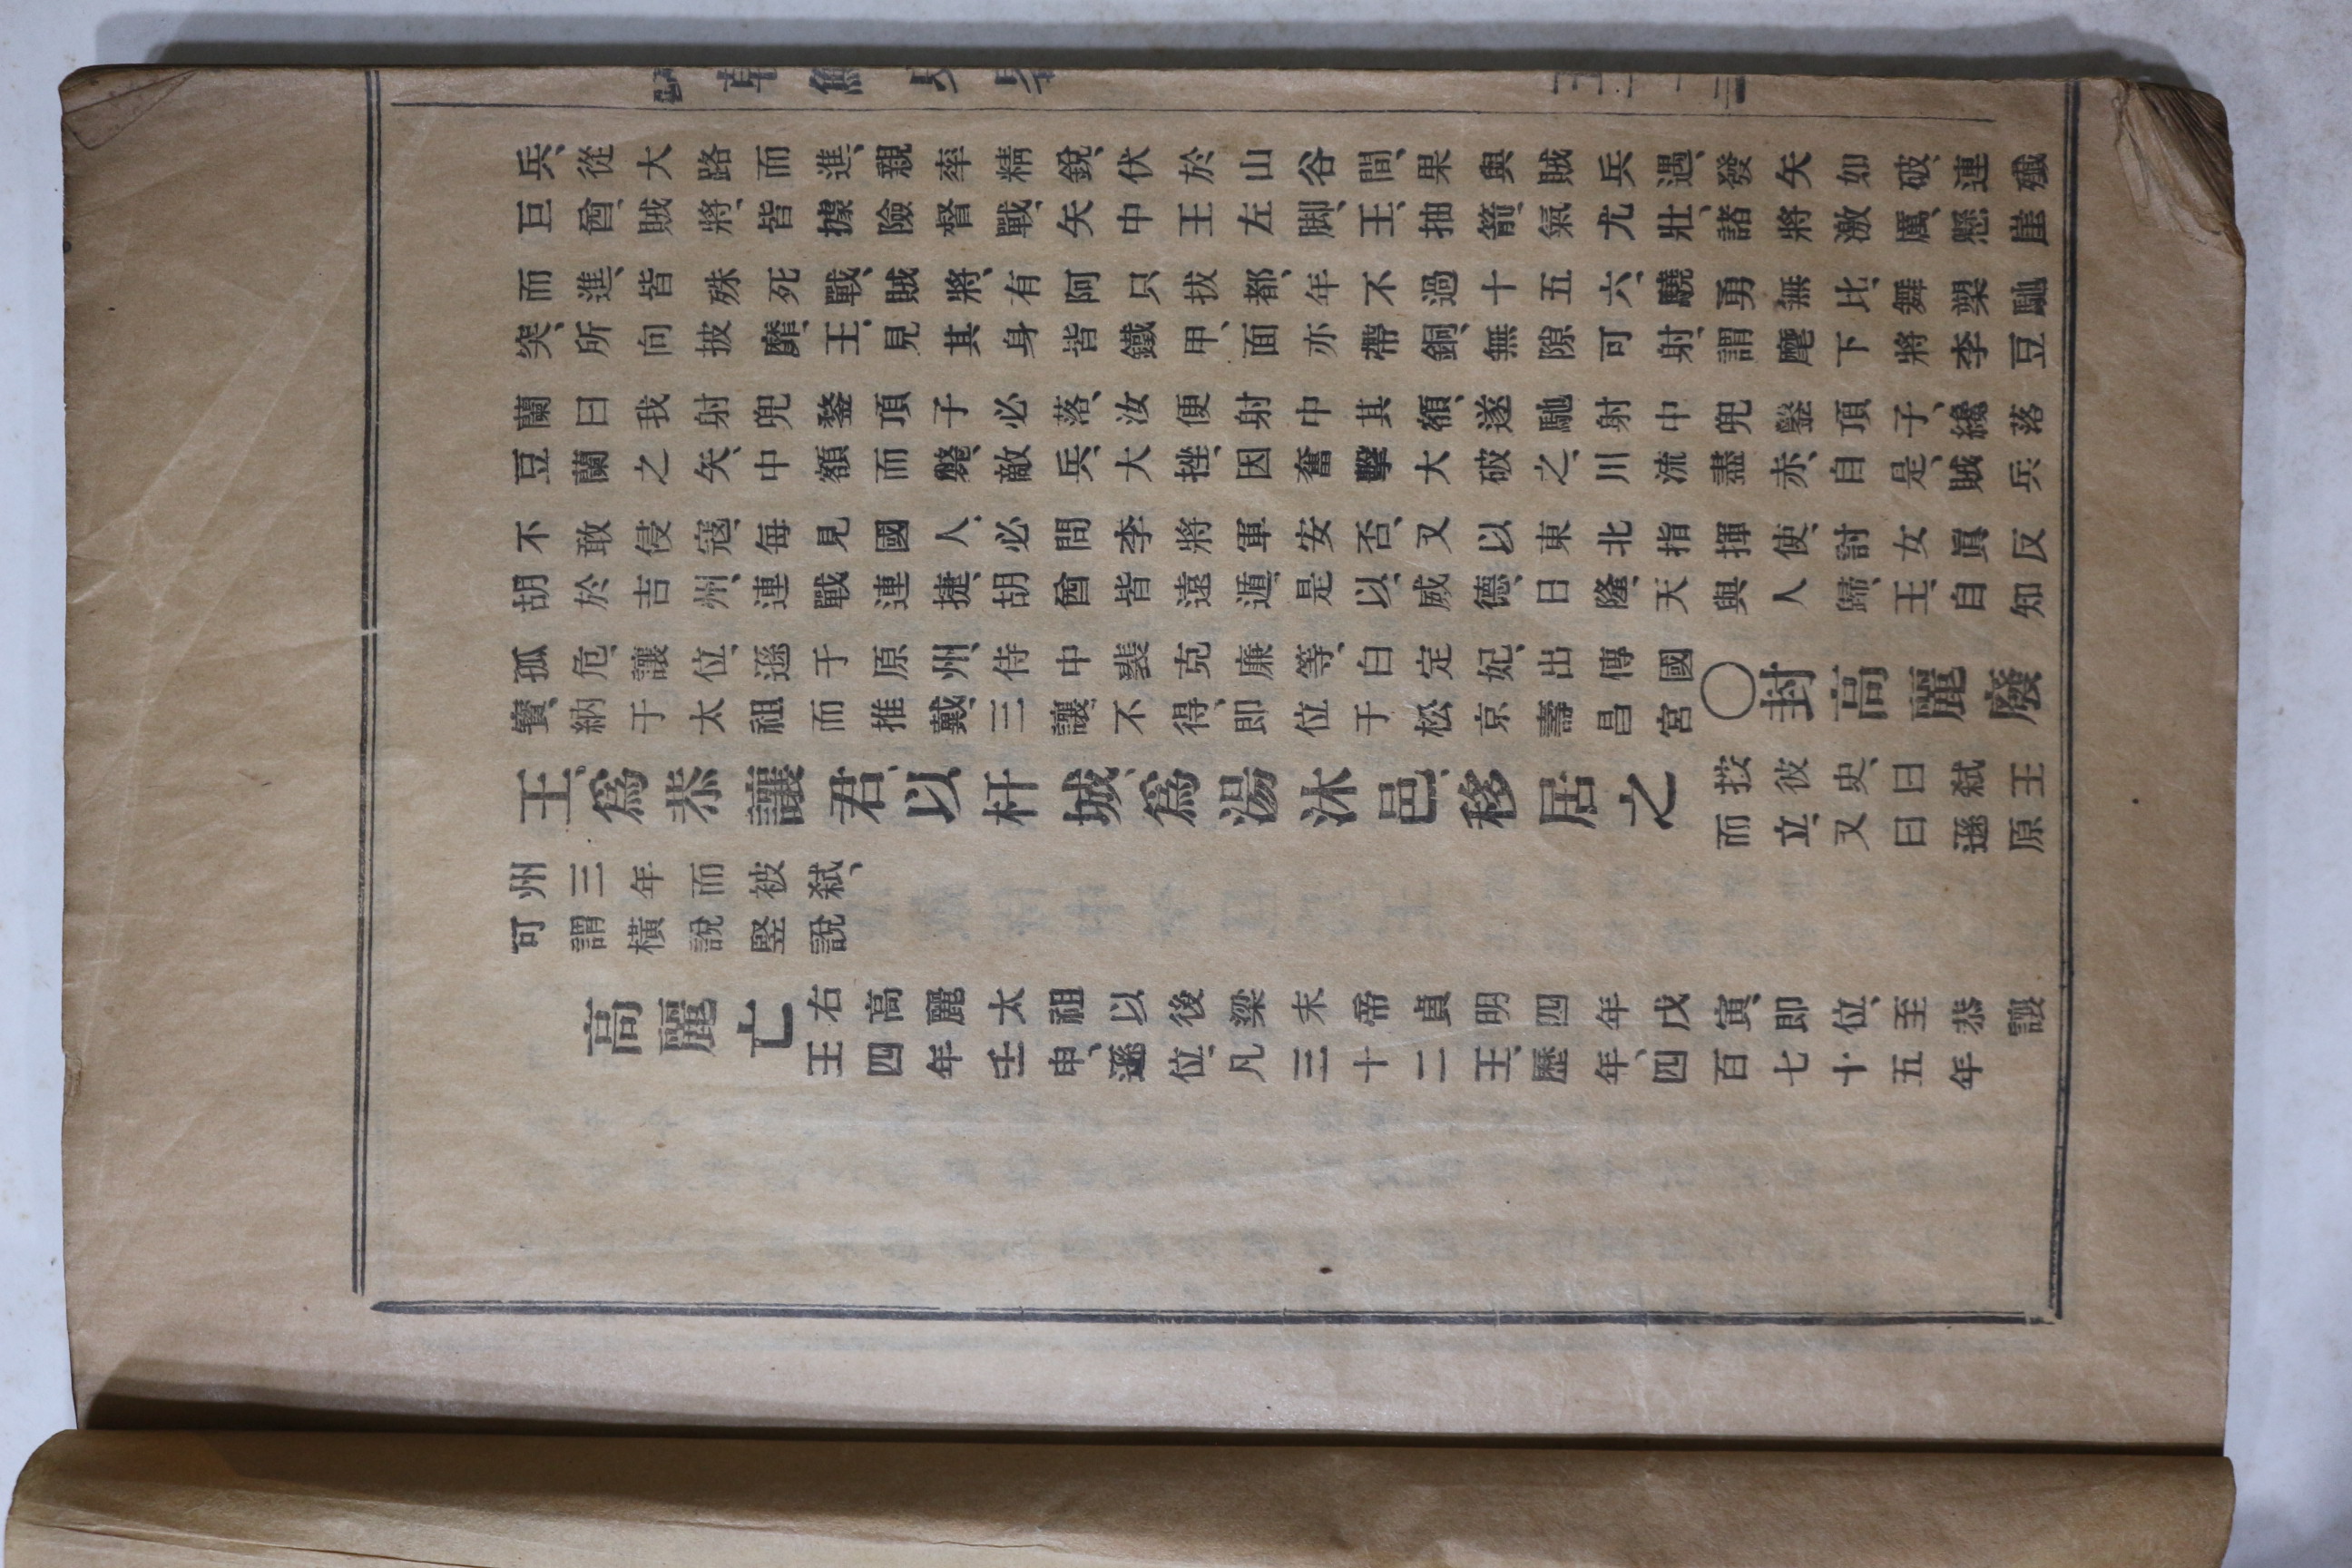 兵、從大路而進、親率精銳、伏於山谷間、果與賊兵遇、發矢如破、連殲
巨酋、賊將、皆據險督戰、矢中王左脚、王、抽箭、氣尤壯、諸將激厲、懸崖
而進、皆殊死戰、賊將、有阿只拔都、年不過十五六、驍勇無比、舞槊馳
突、所向披靡、王、見其身皆鐵甲、面亦帶銅、無隙可射、謂麾下將李豆
蘭曰我射兜鍪頂子必落、汝便射中其額、遂馳射中兜鍪頂子、纔落
豆蘭之矢、中額而斃、敵兵、大挫、因奮擊大破之、川流盡赤、自是、賊兵
不敢侵寇、每見國人、必問李將軍安否、又以東北指揮使、討女眞反
胡於吉州、連戰連捷、胡酋皆遠遁、是以、威德、日隆、天與人歸、王、自知
孤危、讓位、遜于原州、侍中裴克廉等、白定妃、出傳國
寳、納于太祖而推戴、三讓不得、即位于松京壽昌宮
○封高麗廢
王、爲恭讓君、以杆城、爲湯沐邑、移居之
按彼史、曰弑王
而立、又曰遜原
州三年而被弑、
可謂橫說竪說
高麗亡
右高麗太祖以後梁末帝貞明四年戊寅、即位、至恭讓
王四年壬申、遜位、凡三十二王、歷年、四百七十五年